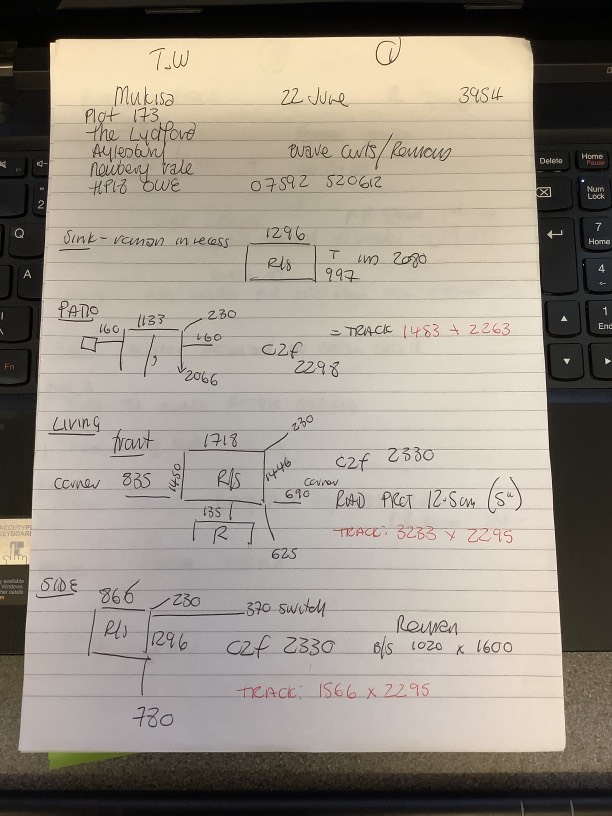 T.W ①
Mukisa 22 June 3954
Plot 173
The Lydford
Aylesbury wave curts/Remons
Newbery vale
HP18 0WE 07592 520612
Sink - roman in recess 1296
R/s T im 2080
997
PATIO 160 1133 230
160
2066
= TRACK 1483 + 2263
C2f
2298
LIVING
front 1718 230
corner 835 1450 R/s 1446 corner 690
135
R
625
C2f 2330
RAD PROT 12.5cm (5")
TRACK: 3233 x 2295
SIDE 866 230 370 switch
R/s 1296
780
C2f 2330
B/s 1020 x 1600
TRACK: 1566 x 2295
Q
A
Fn
2
Delete
Home
Pause
Num
Lock
7
Home
4
1
End